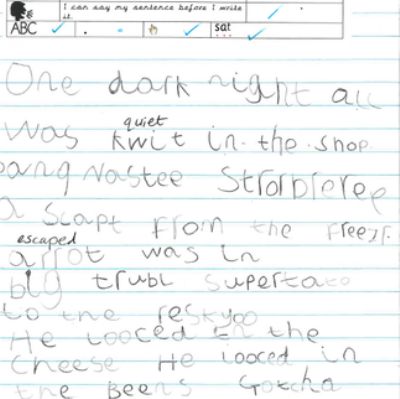 I can say my sentence before I write it.
ABC . sat
One dark night all
was kwit in the shop
quiet
bang Nastee
a scapt from the freezr.
escaped
was in
big trubl Supertato
to the reskyoo
He looced in the
cheese He looced in
the Beens Gotcha